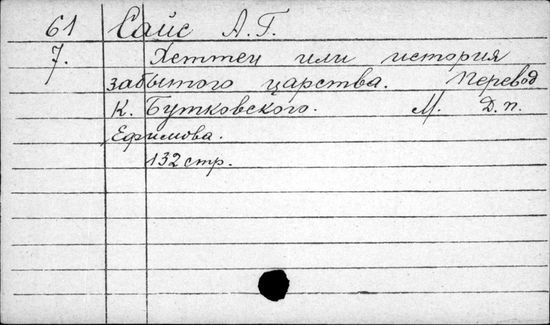 61 Сайс А.Г.
7. Хеттеи или история
забытого царства. Перевод
К. Бутковского. М. Д.п.
Ефимова.
132 стр.